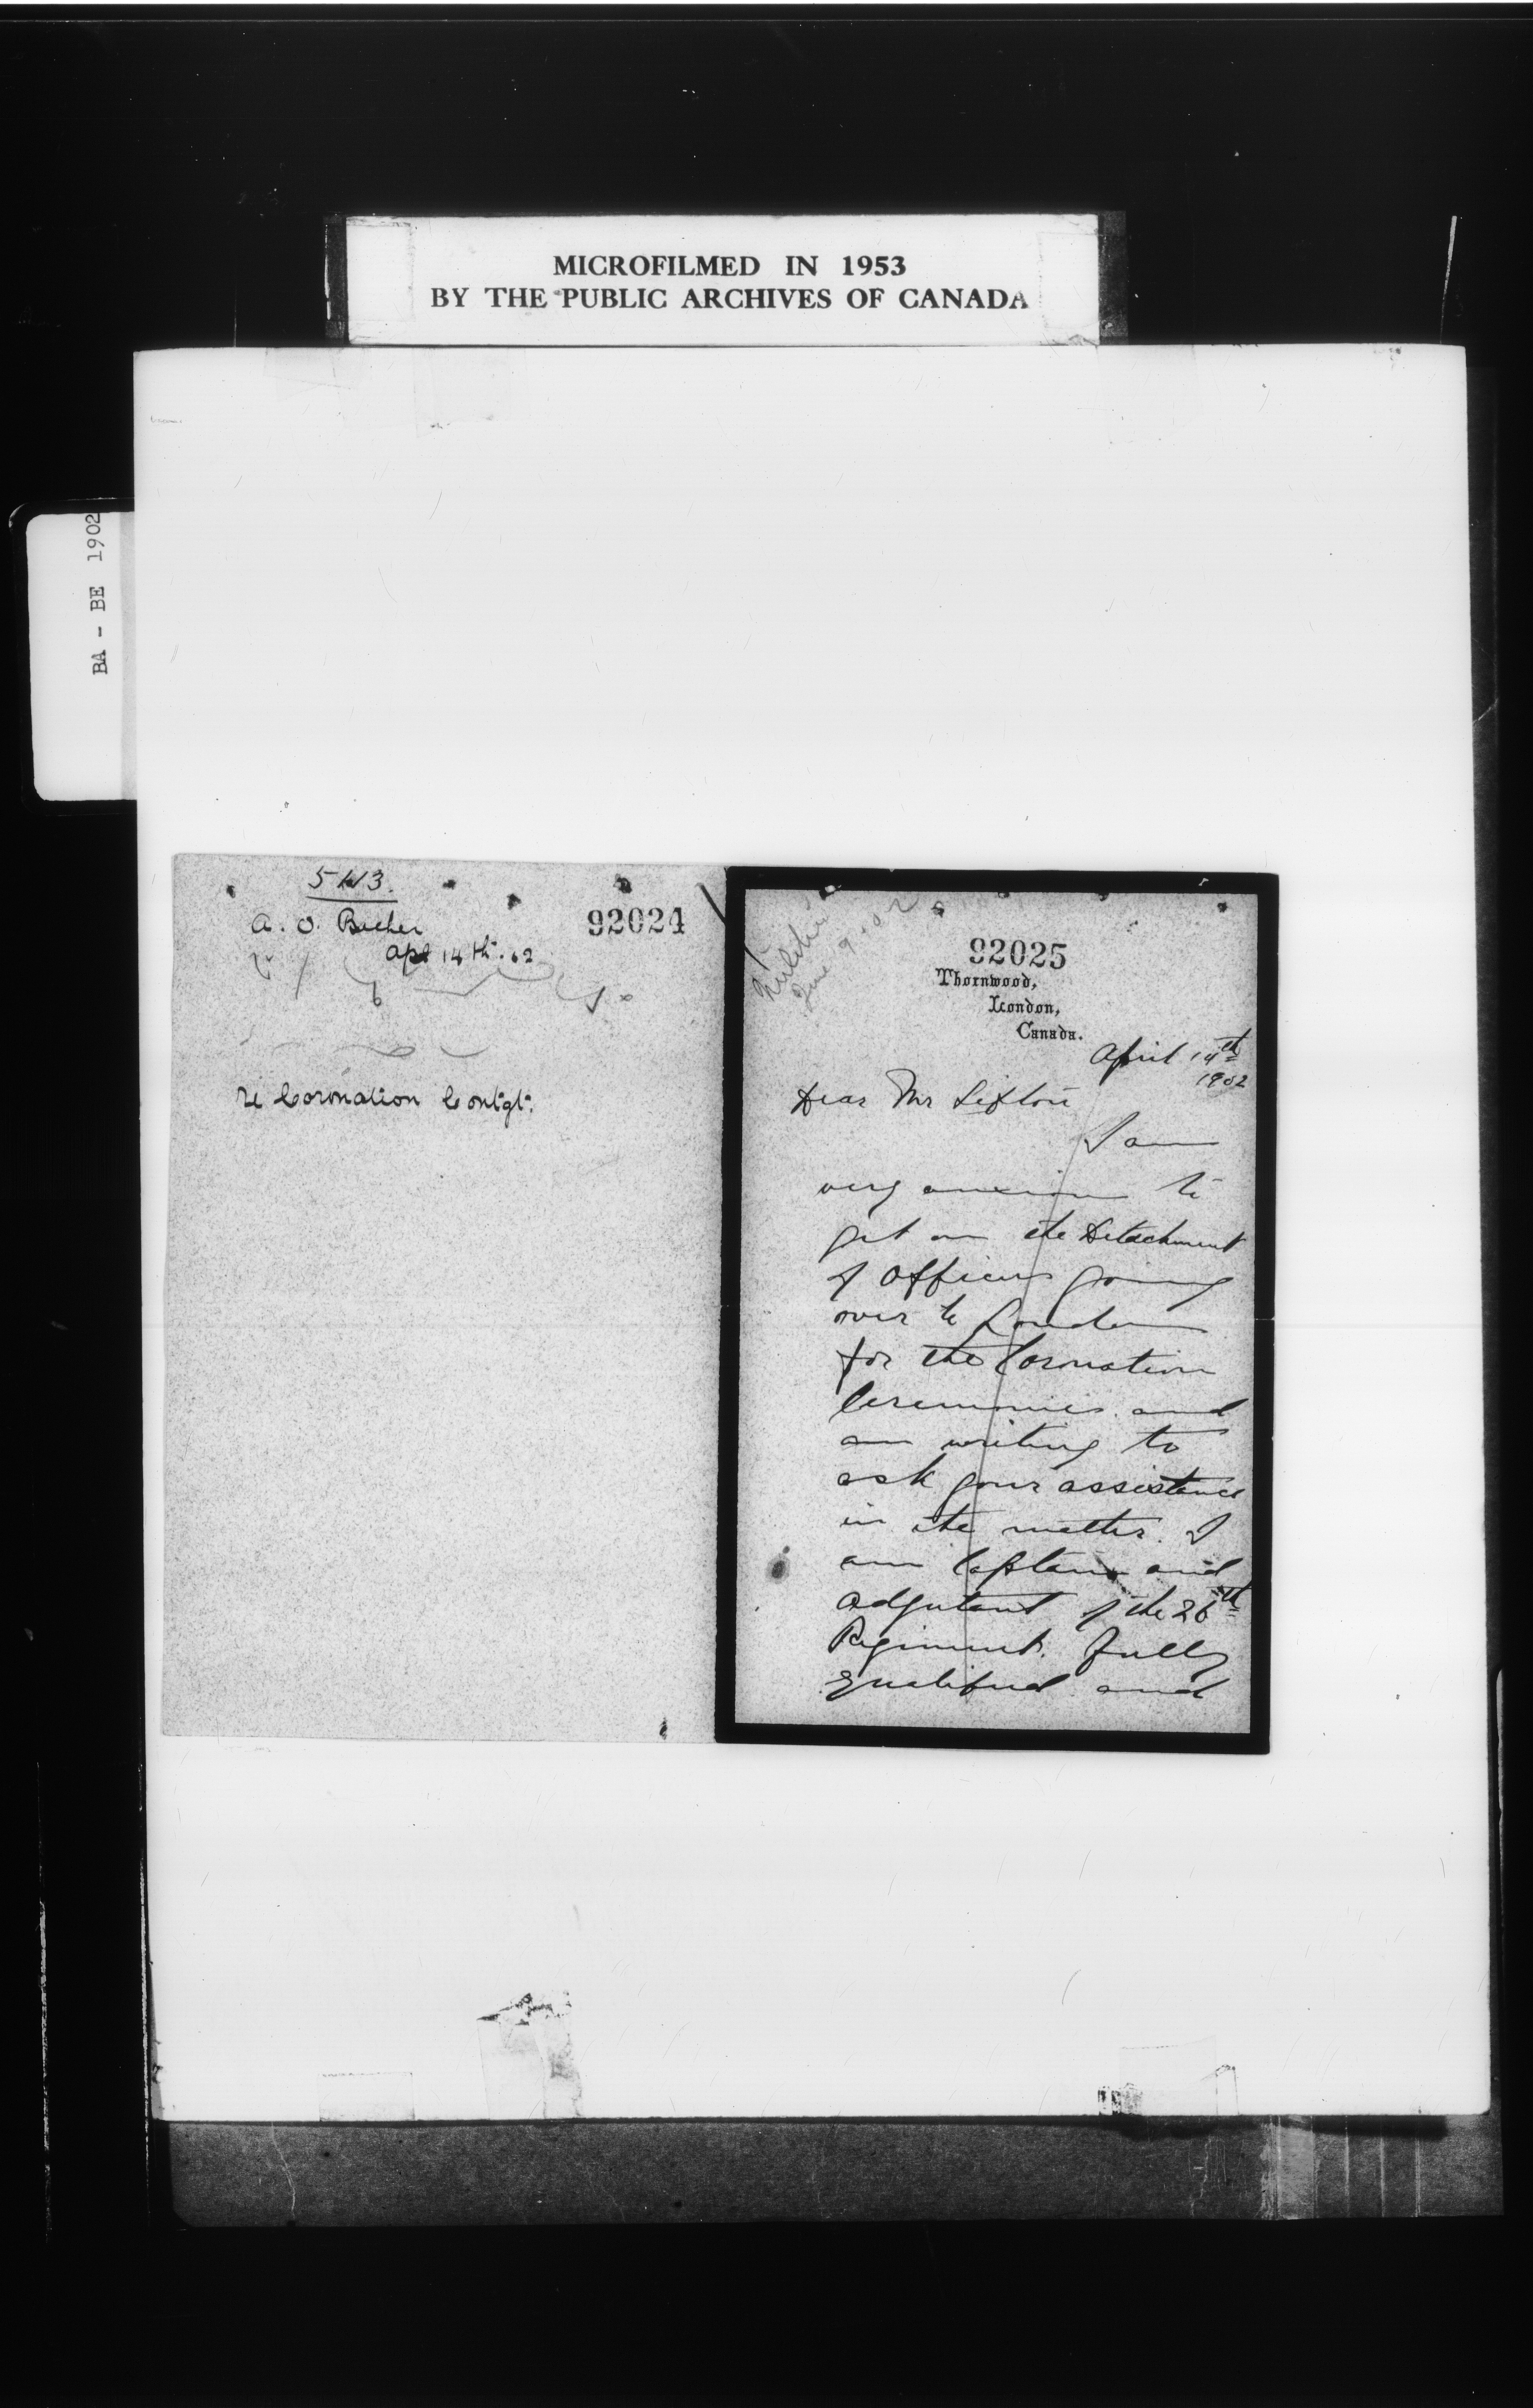 MICROFILMED IN 1953
BY THE PUBLIC ARCHIVES OF CANADA
BA - BE 1902
92024
A. O. Becher
Apl 14th. 02
re Coronation Contgt.
92025
Thornwood,
London,
Canada.
April 14th
1902
Dear Mr Sifton
I am
very anxious to
get on the Detachment
of Officers going
over to London
for the Coronation
Ceremonies and
am writing to
ask your assistance
in the matter. I
am Captain and
Adjutant of the 26th
Regiment. fully
qualified and